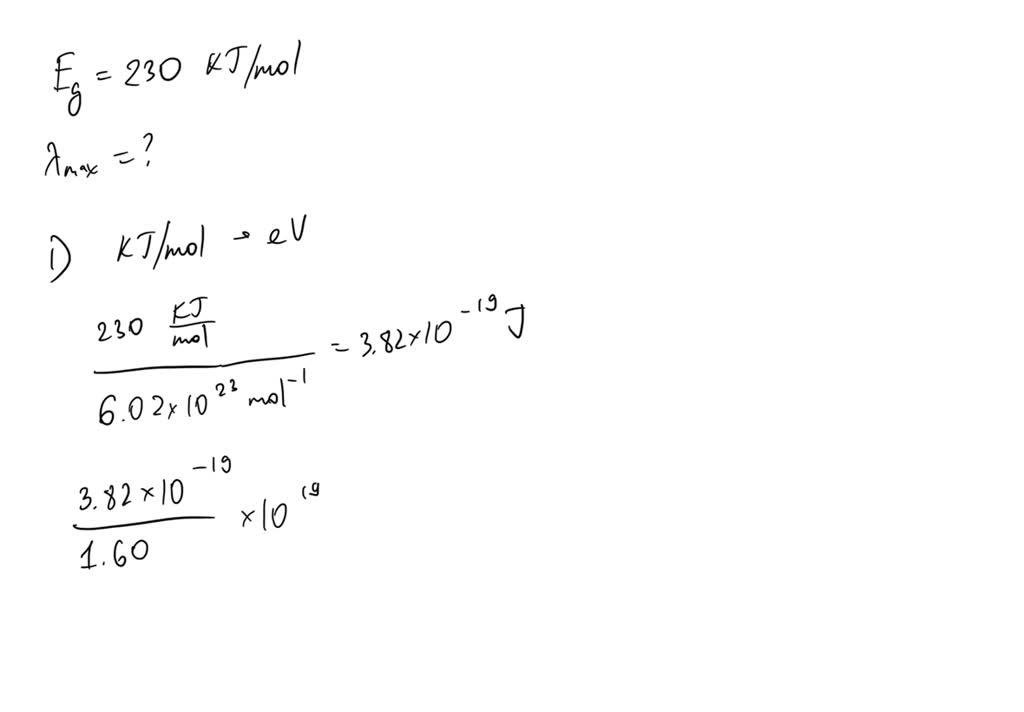 Eg = 230 KJ/mol
λmax = ?
1) KJ/mol → eV
230 KJ/mol
6.02×10^23 mol^-1
= 3.82×10^-19 J
3.82×10^-19
1.60
×10^19